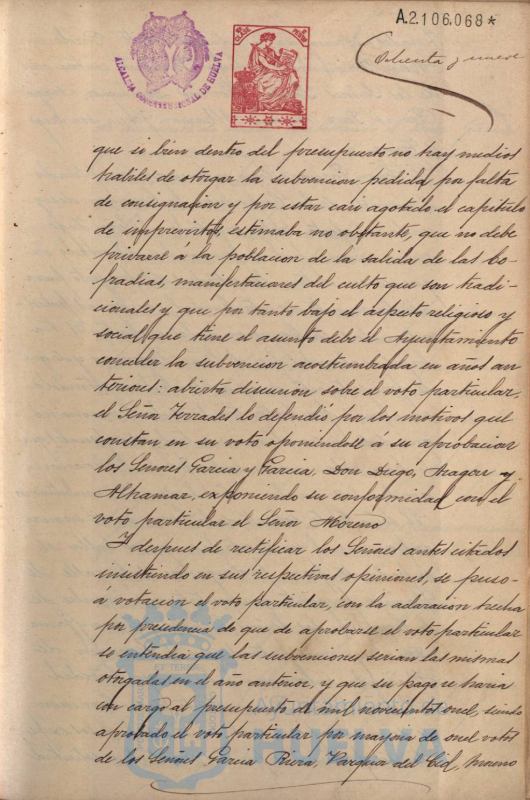 A.2.106.068*
Ochenta y nueve
ALCALDIA CONSTITUCIONAL DE HUELVA
que si bien dentro del presupuesto no hay medios
habiles de otorgar la subvencion pedida por falta
de consignacion y por estar casi agotado el capitulo
de imprevistos, estimaba no obstante, que no debe
privarse á la poblacion de la salida de las Co-
fradias, manifestaciones del culto que son tradi-
cionales y que por tanto bajo el aspecto religioso y
social que tiene el asunto debe el Ayuntamiento
conceder la subvencion acostumbrada en años an-
teriores: abierta discusion sobre el voto particular,
el Señor Terrades lo defendió por los motivos que
constan en su voto oponiendose á su aprobacion
los Señores Garcia y Garcia, Don Diego, Aragon y
Alhamar, exponiendo su conformidad con el
voto particular el Señor Moreno
Y despues de rectificar los Señores antes citados
insistiendo en sus respectivas opiniones, se puso
á votacion el voto particular, con la aclaracion hecha
por presidencia de que de aprobarse el voto particular
se entendia que las subvenciones serian las mismas
otorgadas en el año anterior, y que su pago se haria
con cargo al presupuesto de mil novecientos once, siendo
aprobado el voto particular por mayoria de once votos
de los Señores Garcia Riera, Vazquez del Cid, Moreno
HUELVA